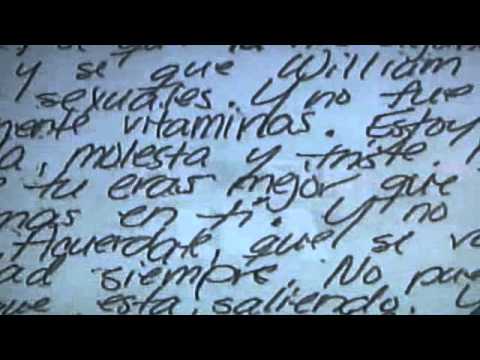 y se que William
sexuales. Y no fue
mente vitaminas. Estoy
a, molesta y triste.
e tu eras mejor que
mas en ti. Y no
Acuerdate, que se va
ad siempre. No pue
que esta saliendo. Y